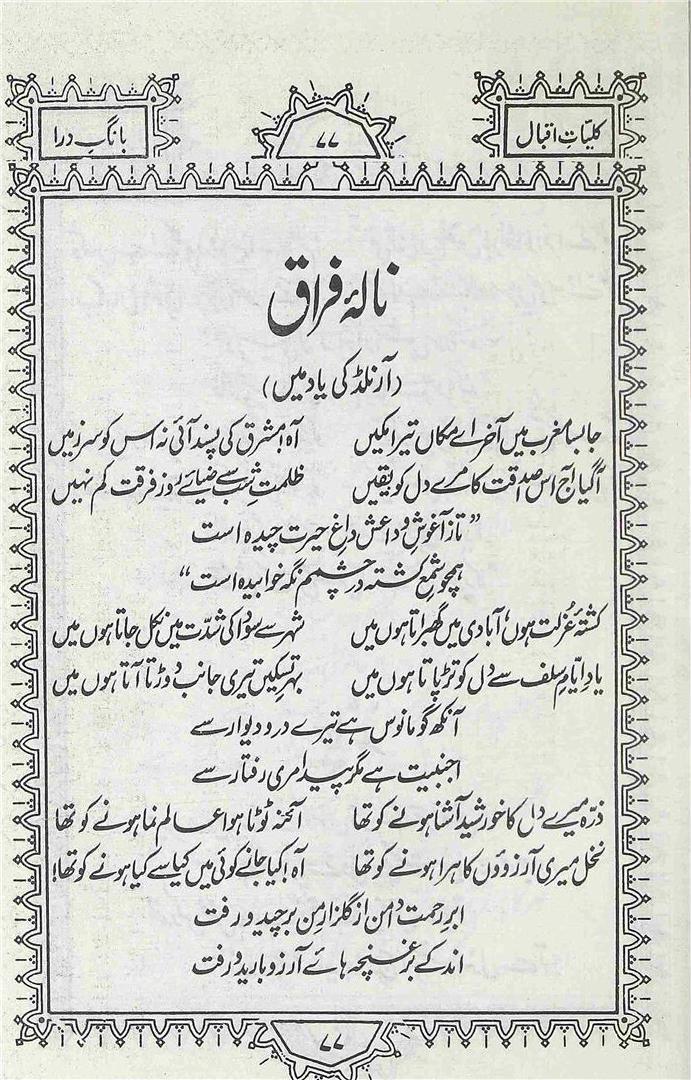 کلیاتِ اقبال
۷۷
بانگِ درا
نالۂ فراق
(آرنلڈ کی یاد میں)
جا بسا مغرب میں آخر اے مکاں تیرا مکیں آہ! مشرق کی پسند آئی نہ اس کو سرزمیں
آگیا آج اس صداقت کا مرے دل کو یقیں ظلمتِ شب سے ضیائے روزِ فرقت کم نہیں
”تا ز آغوشِ وداعش داغِ حیرت چیدہ است
ہمچو شمعِ کشتہ در چشمم نگہ خوابیدہ است“
کشتۂ عزلت ہوں، آبادی میں گھبراتا ہوں میں شہر سے سودا کی شدّت میں نکل جاتا ہوں میں
یادِ ایّامِ سلف سے دل کو تڑپاتا ہوں میں بہرِ تسکیں تیری جانب دوڑتا آتا ہوں میں
آنکھ گو مانوس ہے تیرے در و دیوار سے
اجنبیت ہے مگر پیدا مری رفتار سے
ذرّہ میرے دل کا خورشید آشنا ہونے کو تھا آئنہ ٹوٹا ہوا عالم نما ہونے کو تھا
نخل میری آرزوؤں کا ہرا ہونے کو تھا آہ! کیا جانے کوئی میں کیا سے کیا ہونے کو تھا!
ابرِ رحمت دامن از گلزارِ من برچید و رفت
اندکے بر غنچہ ہائے آرزو بارید و رفت
۷۷